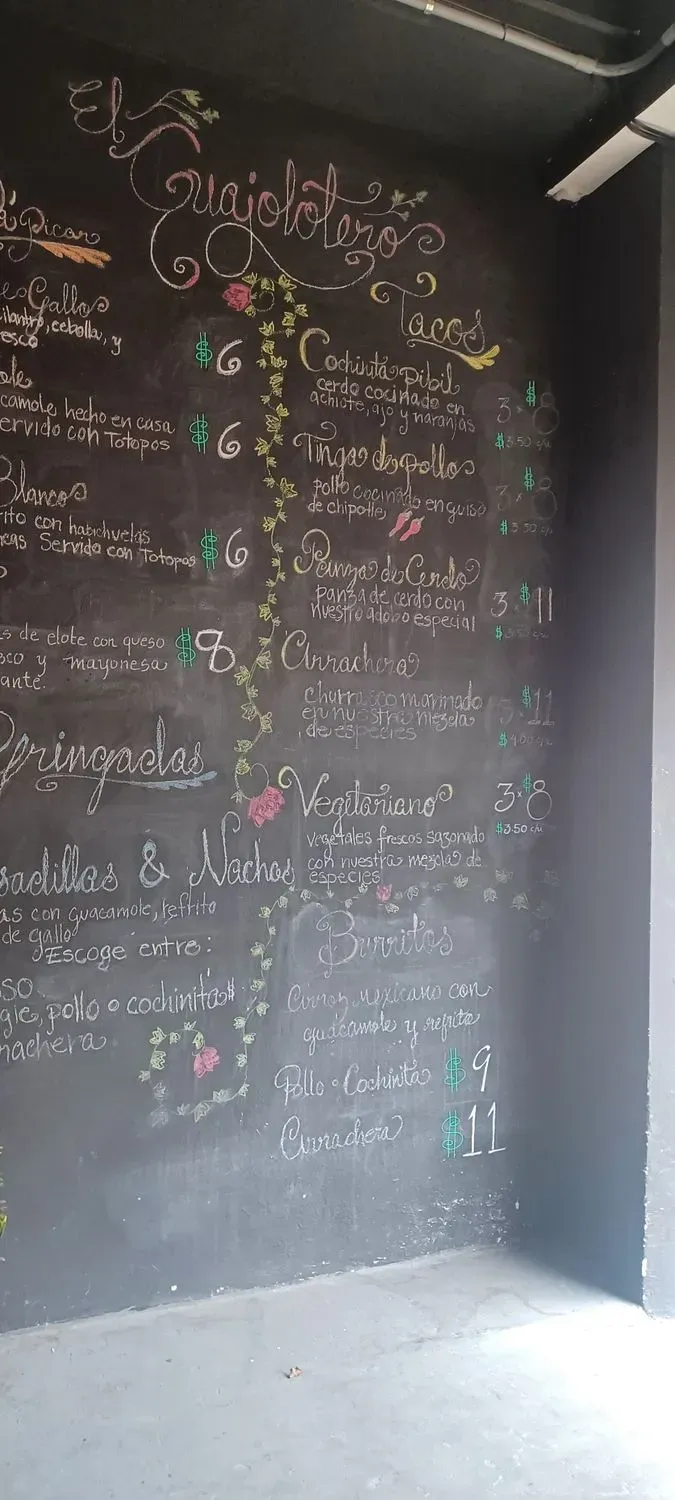 El
Guajolotero
a Picar
Gallo
ilantro, cebolla, y
esco
$6
ole
camole hecho en casa
ervido con Totopos
$6
Blanco
ito con habichuelas
eas Servido con Totopos
$6
s de elote con queso
sco y mayonesa
ante.
$8
Gringadas
sadillas & Nachos
as con guacamole, refrito
de gallo
Escoge entre:
so
gie, pollo o cochinita $
rachera
Tacos
Cochinita pibil
cerdo cocinado en
achiote, ajo y naranjas
3 x $8
$3.50 c/u
Tinga de pollo
pollo cocinado en guiso
de chipotle
3 x $8
$3.50 c/u
Panza de Cerdo
panza de cerdo con
nuestro adobo especial
3 $11
Arrachera
churrasco marinado
en nuestra mezcla
de especies
$11
$4.00 c/u
Vegetariano
vegetales frescos sazonado
con nuestra mezcla de
especies
3 x $8
$3.50 c/u
Burritos
Arroz mexicano con
guacamole y refrito
Pollo o Cochinita $9
Arrachera $11